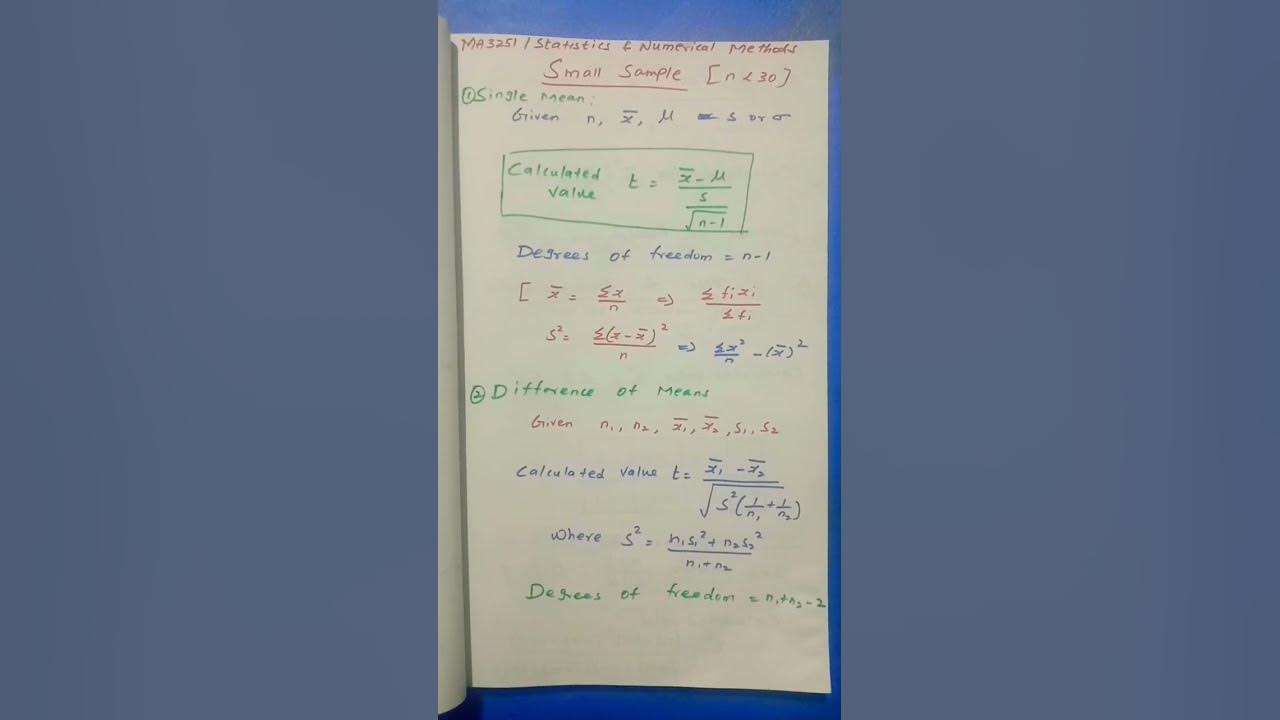 MA3251 / Statistics & Numerical Methods
Small Sample [n < 30]
① Single Mean:
Given n, x̄, μ s or σ
Calculated value t = (x̄ - μ) / (s / √(n-1))
Degrees of freedom = n-1
[ x̄ = Σx / n ⇒ Σfᵢxᵢ / Σfᵢ
s² = Σ(x - x̄)² / n ⇒ Σx² / n - (x̄)²
② Difference of Means
Given n₁, n₂, x̄₁, x̄₂, s₁, s₂
Calculated value t = (x̄₁ - x̄₂) / √(S² (1/n₁ + 1/n₂))
where S² = (n₁s₁² + n₂s₂²) / (n₁ + n₂)
Degrees of freedom = n₁+n₂-2